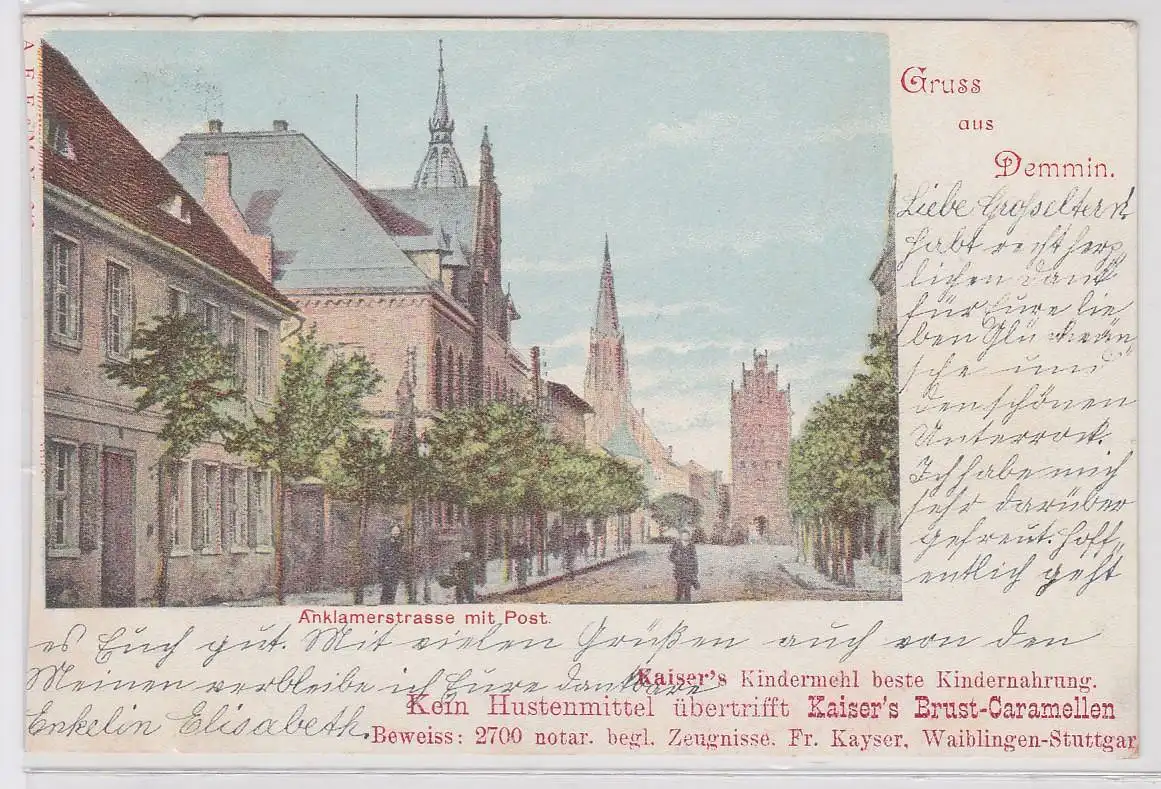 Gruss
aus
Demmin.
Liebe Großeltern!
habt recht herz„
lichen Dank
für Eure lie
ben Glückwün
sche und
den schönen
Unterrock.
Ich habe mich
sehr darüber
gefreut. Hoff„
entlich geht
Anklamerstrasse mit Post.
es Euch gut. Mit vielen Grüßen auch von den
Meinen verbleibe ich Eure dankbare
Enkelin Elisabeth.
Kaiser's Kindermehl beste Kindernahrung.
Kein Hustenmittel übertrifft Kaiser's Brust-Caramellen
Beweiss: 2700 notar. begl. Zeugnisse. Fr. Kayser, Waiblingen-Stuttgar